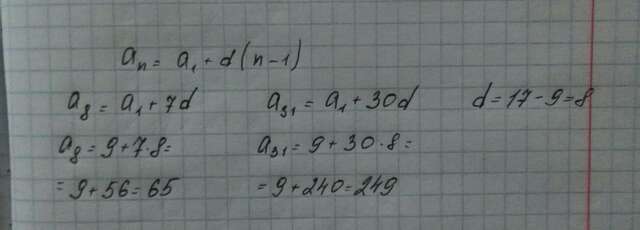 aₙ = a₁ + d(n-1)
a₈ = a₁ + 7d
a₃₁ = a₁ + 30d
d = 17 - 9 = 8
a₈ = 9 + 7·8 =
a₃₁ = 9 + 30·8 =
= 9 + 56 = 65
= 9 + 240 = 249